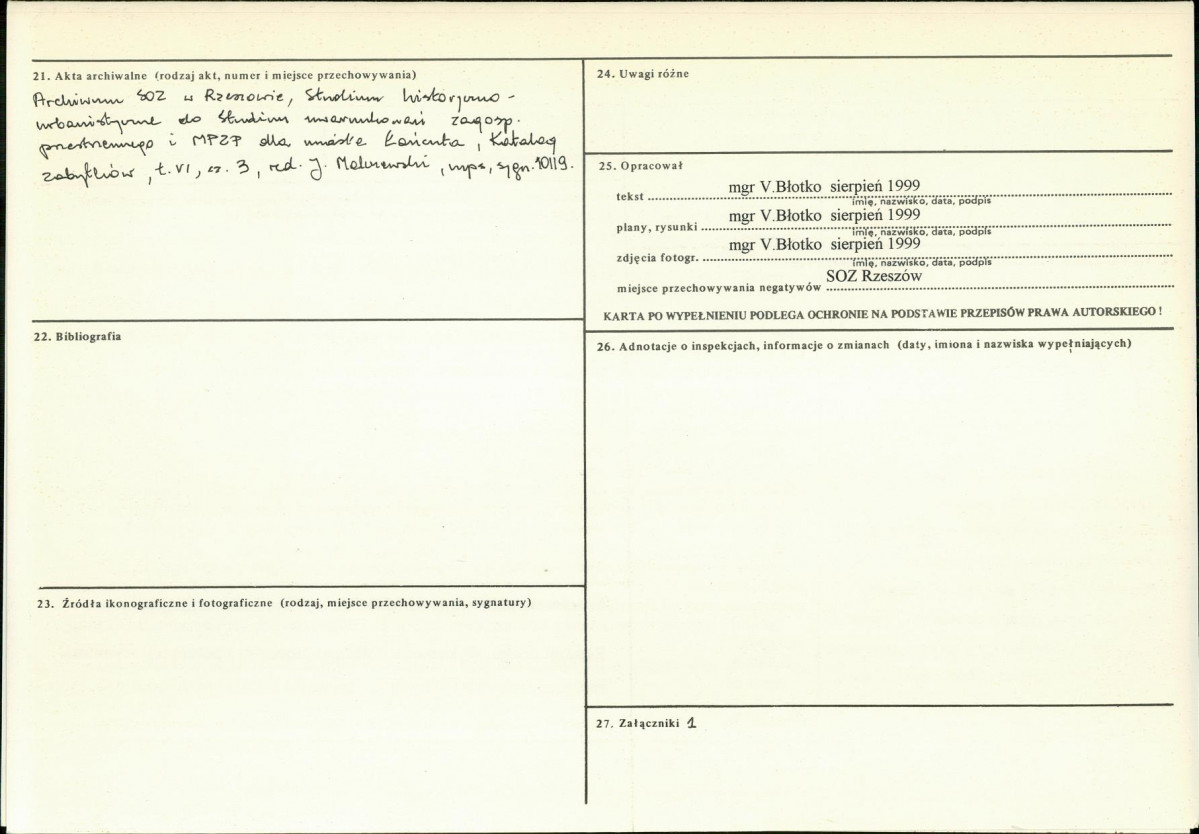 21. Akta archiwalne (rodzaj akt, numer i miejsce przechowywania)
Archiwum SOZ w Rzeszowie, Studium historyczno-
urbanistyczne do studium uwarunkowań zagosp.
przestrzennego i MPZP dla miasta Łańcuta, Katalog
zabytków, t. VI, cz. 3, red. J. Malczewski, mps, sygn. 10119.
22. Bibliografia
23. Źródła ikonograficzne i fotograficzne (rodzaj, miejsce przechowywania, sygnatury)
24. Uwagi różne
25. Opracował
tekst mgr V.Błotko sierpień 1999
imię, nazwisko, data, podpis
plany, rysunki mgr V.Błotko sierpień 1999
imię, nazwisko, data, podpis
zdjęcia fotogr. mgr V.Błotko sierpień 1999
imię, nazwisko, data, podpis
miejsce przechowywania negatywów SOZ Rzeszów
KARTA PO WYPEŁNIENIU PODLEGA OCHRONIE NA PODSTAWIE PRZEPISÓW PRAWA AUTORSKIEGO !
26. Adnotacje o inspekcjach, informacje o zmianach (daty, imiona i nazwiska wypełniających)
27. Załączniki 1